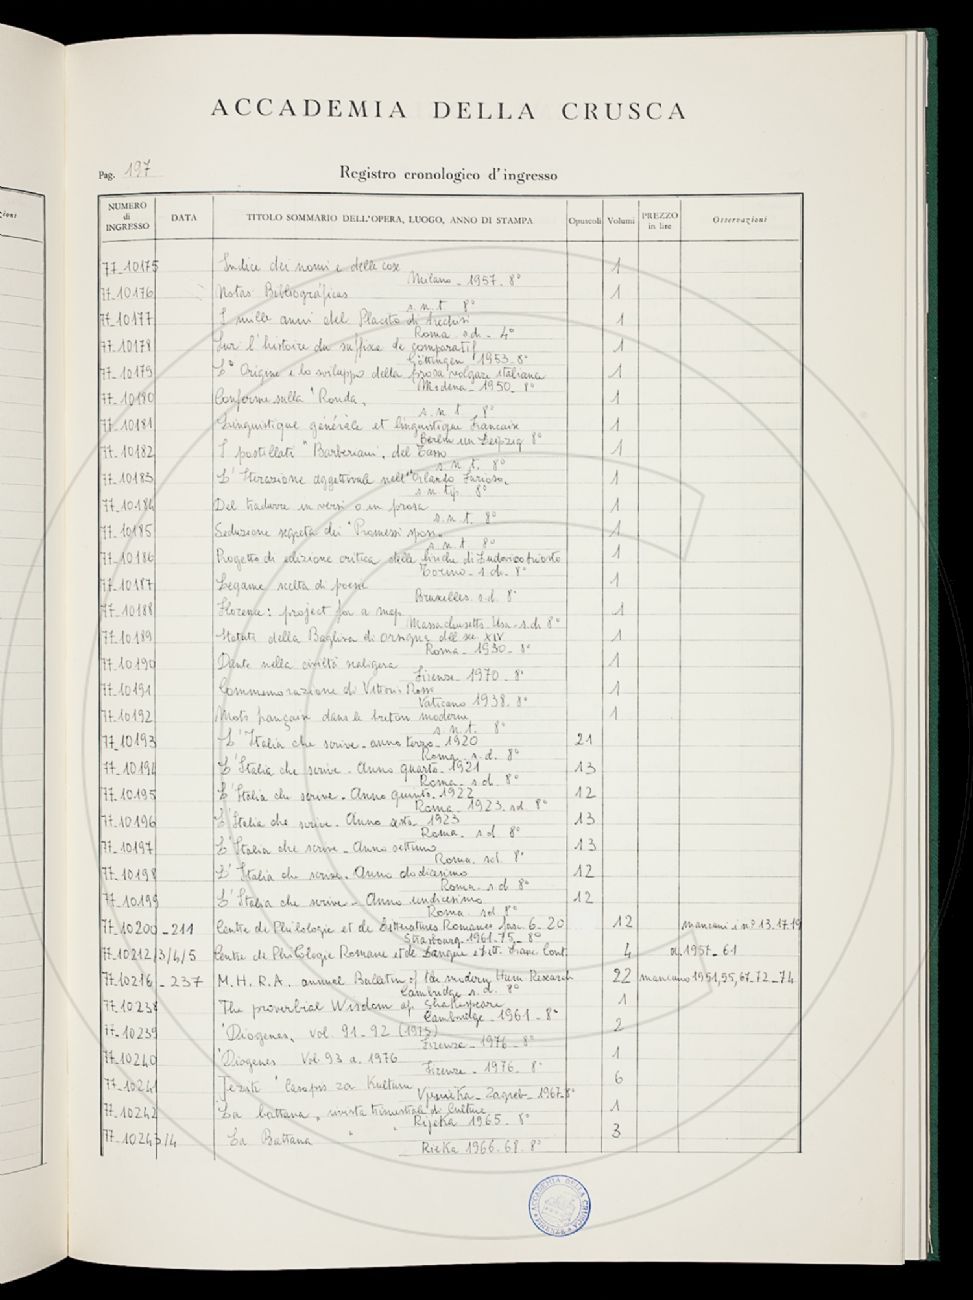 ACCADEMIA DELLA CRUSCA
Pag. 197 Registro cronologico d'ingresso
NUMERO di INGRESSO DATA TITOLO SOMMARIO DELL'OPERA, LUOGO, ANNO DI STAMPA Opuscoli Volumi PREZZO in lire Osservazioni
77_10175 Indice dei nomi e delle cose 1
Milano - 1957. 8°
77_10176 Notas Bibliográficas 1
s. n. t. 8°
77_10177 I mille anni del Placito di 1
Roma s.d. - 4°
77_10178 Sur l'histoire du suffixe de comparatif 1
Göttingen 1953 - 8°
77_10179 L'Origine e lo sviluppo della prosa volgare italiana 1
Modena - 1950 - 8°
77_10180 sulla "Ronda" 1
s. n. t. 8°
77_10181 Linguistique générale et linguistique française 1
Berlin un Leipzig 8°
77_10182 I postillati "Barberiani" del Tasso 1
s. n. t. 8°
77_10183 L'Iterazione aggettivale nell'"Orlando Furioso" 1
s. n. tip. 8°
77_10184 Del tradurre in versi o in prosa 1
s. n. t. 8°
77_10185 Seduzione segreta dei "Promessi sposi" 1
s. n. t. 8°
77_10186 Progetto di edizione critica delle liriche di Ludovico Ariosto 1
Torino - s.d. - 8°
77_10187 Legame scelta di poesie 1
Bruxelles s.d. 8°
77_10188 Florence: project for a map 1
Massachusetts Usa - s.d. 8°
77_10189 Statuti della Bagliva di del sec. XIV 1
Roma - 1930 - 8°
77_10190 Dante nella civiltà 1
Firenze - 1970 - 8°
77_10191 Commemorazione di Vittorio Rossi 1
Vaticano 1938. 8°
77_10192 Mots français dans le breton moderne 1
s. n. t. 8°
77_10193 L'Italia che scrive - anno terzo - 1920 21
Roma s. d. 8°
77_10194 L'Italia che scrive - Anno quarto - 1921 13
Roma - s.d. 8°
77_10195 L'Italia che scrive - Anno quinto - 1922 12
Roma - 1923. s.d. 8°
77_10196 L'Italia che scrive - Anno sesto 1923 13
Roma - s.d. 8°
77_10197 L'Italia che scrive - Anno settimo 13
Roma, s.d. 8°
77_10198 L'Italia che scrive - Anno dodicesimo 12
Roma - s.d. 8°
77_10199 L'Italia che scrive - Anno undicesimo 12
Roma s.d. 8°
77_10200 - 211 Centre de Philologie et de Littératures Romanes fasc. 6-20 12 mancani i n° 13.17.19
Strasbourg 1961-75 - 8°
77_10212/3/4/5 Centre de Philologie Romane et de Langue et Litt. Franc. Cont. 4 a. 1957-61
77_10216 - 237 M.H.R.A. annual Bulletin of the modern Hum. Research 22 mancano 1951,55,67-72-74
Cambridge s.d. 8°
77_10238 The proverbial Wisdom of Shakespeare 1
Cambridge - 1961 - 8°
77_10239 "Diogenes" vol. 91-92 (1975) 2
Firenze - 1976 - 8°
77_10240 "Diogenes Vol. 93 a. 1976 1
Firenze - 1976 - 8°
77_10241 za Kulturu 6
Vjesnika - Zagreb - 1967 - 8°
77_10242 La battana, rivista trimestrale di Culture 1
Rijeka 1965 - 8°
77_10243/4 La Battana " " 3
Rieka 1966-68. 8°
ACCADEMIA DELLA CRUSCA